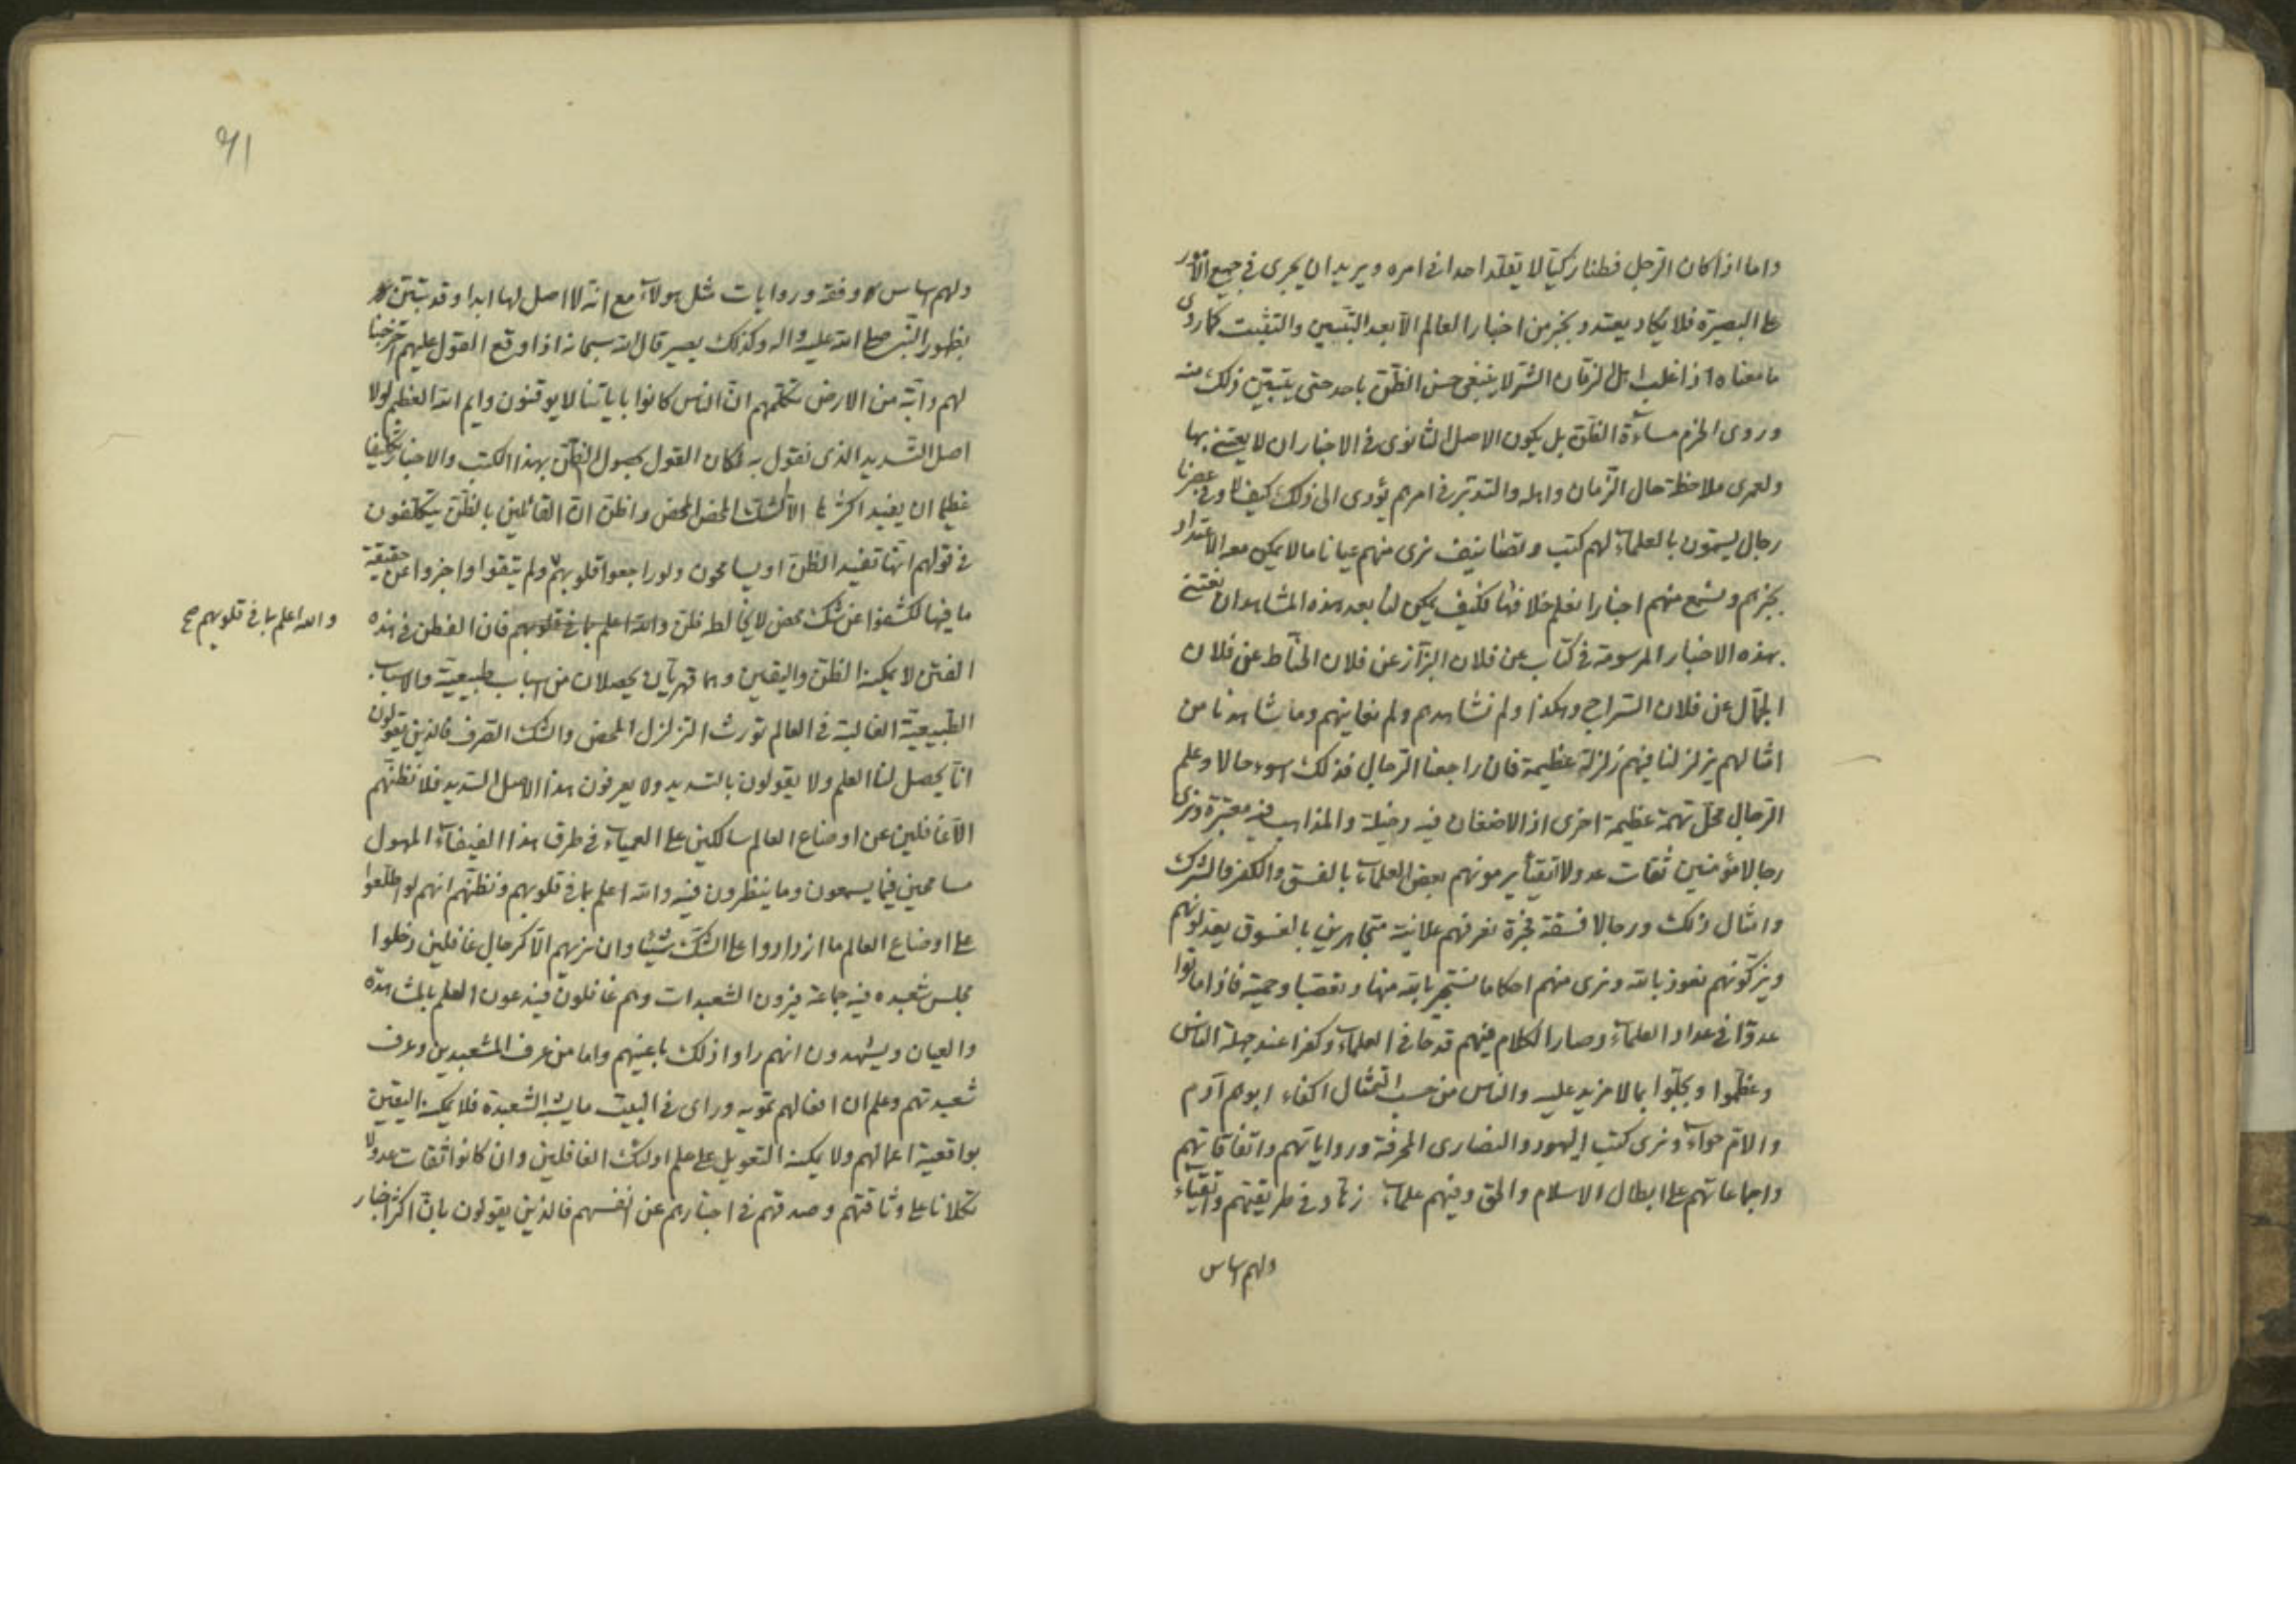 واما اذا كان الرجل فطنا زكيّا لا يقلّد احدا فى امره ويريد ان يجرى فى جميع الامور
على البصيرة فلا يكاد يعتد وبخبر من اخبار العالم الّا بعد التبيين والتثبت كما روى
ما معناه اذا غلب اهل الزمان الشر لا ينبغى حسن الظنّ باحد حتى يتبيّن ذلك منه
وروى الحزم مساءة الظّنّ بل يكون الاصل الثانوى فى الاخبار ان لا يعتنى بها
ولعمرى ملاحظة حال الزّمان واهله والتدبّر فى امرهم يؤدى الى ذلك كيف لا وفى عصرنا
رجال يسمّون بالعلماء لهم كتب وتصانيف نرى منهم عيانا ما لا يمكن معه الاعتداد
بخبرهم ونسمع منهم اخبارا نعلم خلافها فكيف يمكن لنا بعد هذه المشاهدات نعتنى
بهذه الاخبار المرسومة فى كتاب عن فلان البزّاز عن فلان الحنّاط عن فلان
الجمّال عن فلان السّراج وهكذا ولم نشاهدهم ولم نعاينهم وما شاهدنا من
امثالهم يزلزلنا فيهم زلزلة عظيمة فان راجعنا الرجال فذلك اسوء حالا وعلم
الرّجال محلّ تهمة عظيمة اخرى اذ الاضغان فيه دخيلة والمذاهب فيه معتبرة ونرى
رجالا مؤمنين ثقات عدولا اتقياء يرمونهم بعض العلماء بالفسق والكفر والشرك
وامثال ذلك ورجالا فسقة فجرة نعرفهم علانية متجاهرين بالفسوق يعدّلونهم
ويزكّونهم نعوذ بالله ونرى منهم احكاما نستجير بالله منها وتعصّبا وحميّة فاذا ماتوا
عدّوا فى عداد العلماء وصار الكلام فيهم قدحا فى العلماء وكفرا عند جهلة الناس
وعظّموا وبجّلوا بما لا مزيد عليه والناس من حسب التمثال اكفاء ابوهم آدم
والامّ حواء ونرى كتب اليهود والنصارى المحرفة ورواياتهم واتفاقاتهم
واجماعاتهم على ابطال الاسلام والحق وفيهم علماء زهّاد فى طريقتهم واتقياء
ولهم اساس
٩١
ولهم اساس وفقه وروايات مثل هولاء مع انّه لا اصل لها ابدا وقد تبيّن
بظهور النّبى صلى الله عليه واله وكذلك يصير قال الله سبحانه اذا وقع القول عليهم اخرجنا
لهم دابّة من الارض تكلّمهم انّ الناس كانوا باياتنا لا يوقنون وايم الله العظيم لولا
اصل التسديد الذى نقول به لكان القول بحصول الظنّ بهذا الكتب والاخبار تكليفا
عظيما ان يفيد اكثرها الا الشك المحض المحض واظن انّ القائلين بالظّنّ يتكلّفون
فى قولهم انّها تفيد الظّنّ او يسامحون ولو راجعوا قلوبهم ولم يتّقوا واخبروا عن حقيقة
ما فيها لكشفوا عن شك محض لا يخالطه ظنّ والله اعلم بما فى قلوبهم فان الفطن فى هذه
والله اعلم بما فى قلوبهم صح
الفتن لا يمكنه الظنّ واليقين وهما قهريّان يحصلان من اسباب طبيعيّة والاسباب
الطّبيعيّة الغالبة فى العالم تورث التزلزل المحض والشك الصّرف فالذين يقولون
انّا يحصل لنا العلم ولا يقولون بالتسديد ولا يعرفون هذا الاصل السّديد فلا نظنّهم
الّا غافلين عن اوضاع العالم سالكين على العمياء فى طرق هذا الفيفاء المهول
مسامحين فيما يسمعون وما ينظرون فيه والله اعلم بما فى قلوبهم ونظنّهم انهم لو اطّلعوا
على اوضاع العالم ما ازدادوا على الشّكّ شيئا وان نزنهم الّا كرجال غافلين دخلوا
مجلس شعبده فيه جماعة فيرون الشعبدات وهم غافلون فيدعون العلم بالمشاهدة
والعيان ويشهدون انهم راوا ذلك باعينهم واما من عرف المشعبدين وعرف
شعبدتهم وعلم ان افعالهم تمويه وراى فى البيت ما يشبه الشعبدة فلا يمكنه اليقين
بواقعية اعمالهم ولا يمكنه التعويل على علم اولئك الغافلين وان كانوا ثقات عدولا
تكلانا على وثاقتهم وصدقهم فى اخبارهم عن انفسهم فالذين يقولون بان اكثر اخبار